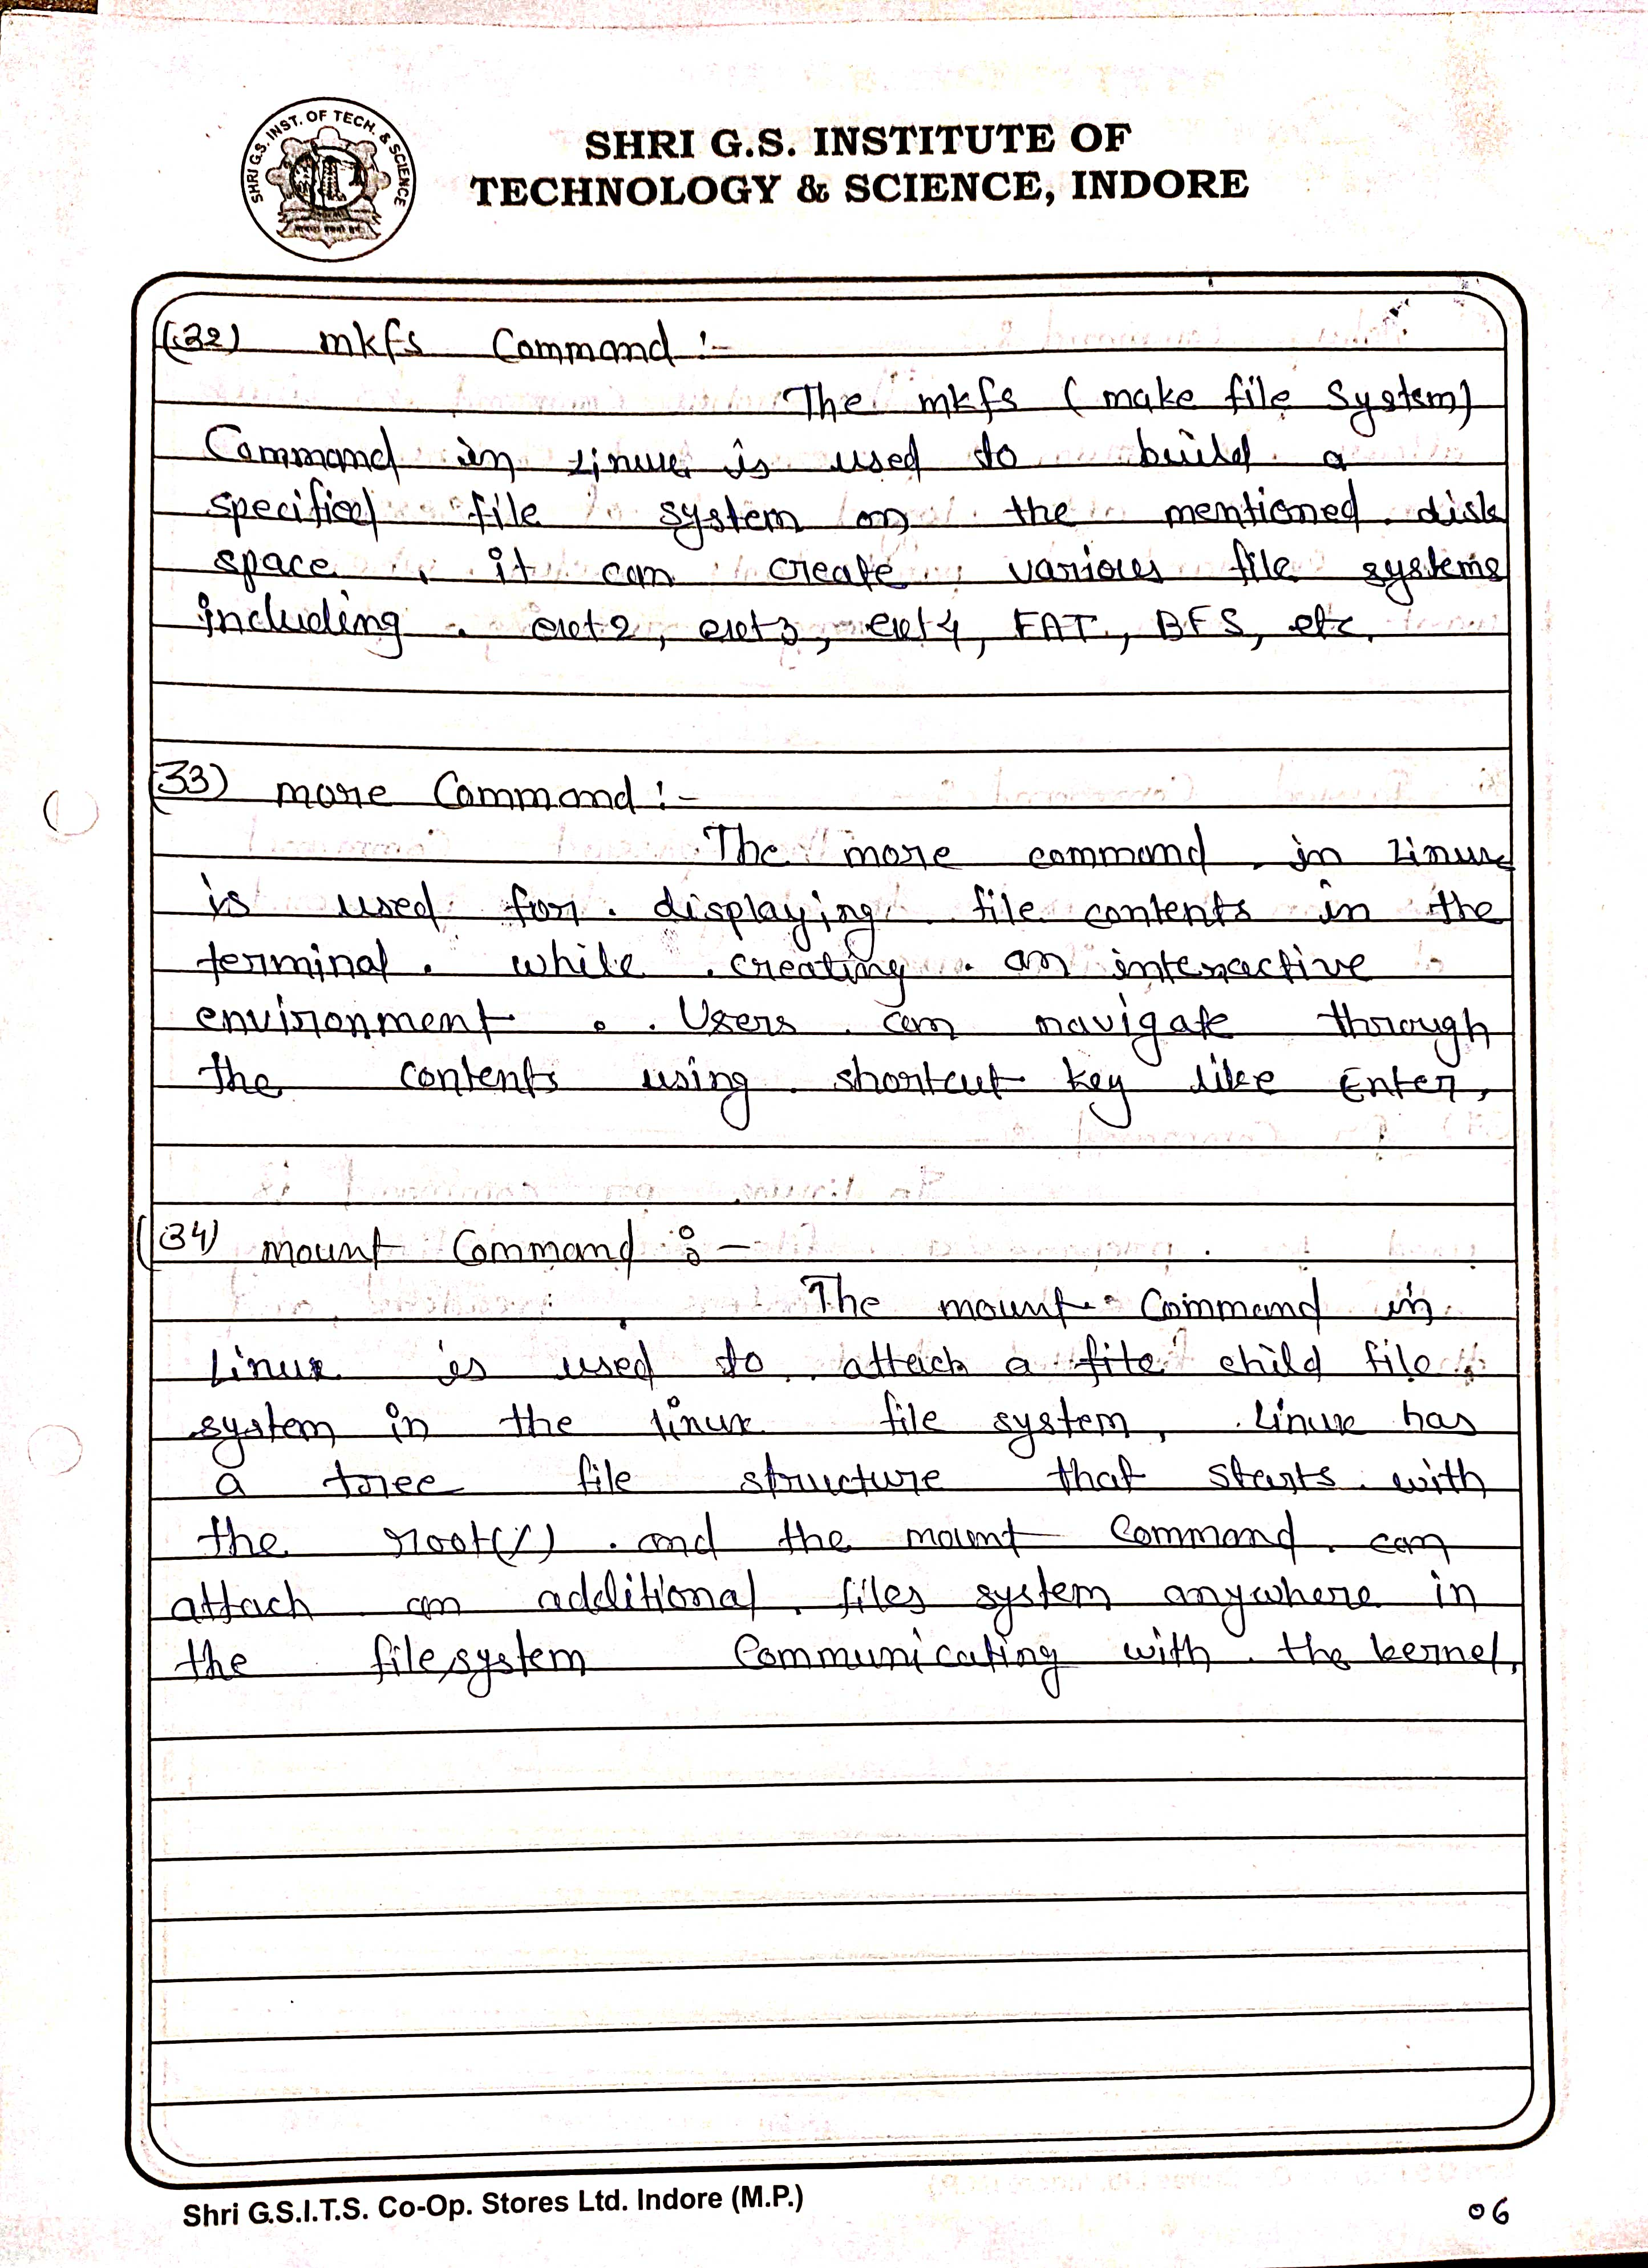 SHRI G.S. INST. OF TECH. & SCIENCE
SHRI G.S. INSTITUTE OF
TECHNOLOGY & SCIENCE, INDORE
(32) mkfs Command :-
The mkfs (make file System)
Command in Linux is used to build a
specified file system on the mentioned disk
space. it can create various file systems
including. ext2, ext3, ext4, FAT, BFS, etc.
(33) more Command :-
The more command in Linux
is used for displaying file contents in the
terminal. while creating an interactive
environment. Users can navigate through
the contents using shortcut key like Enter,
(34) mount Command :-
The mount Command in
Linux is used to attach a file child file
system in the linux file system, Linux has
a tree file structure that starts with
the root(/) and the mount Command can
attach an additional files system anywhere in
the filesystem Communicating with the kernel.
Shri G.S.I.T.S. Co-Op. Stores Ltd. Indore (M.P.)
06